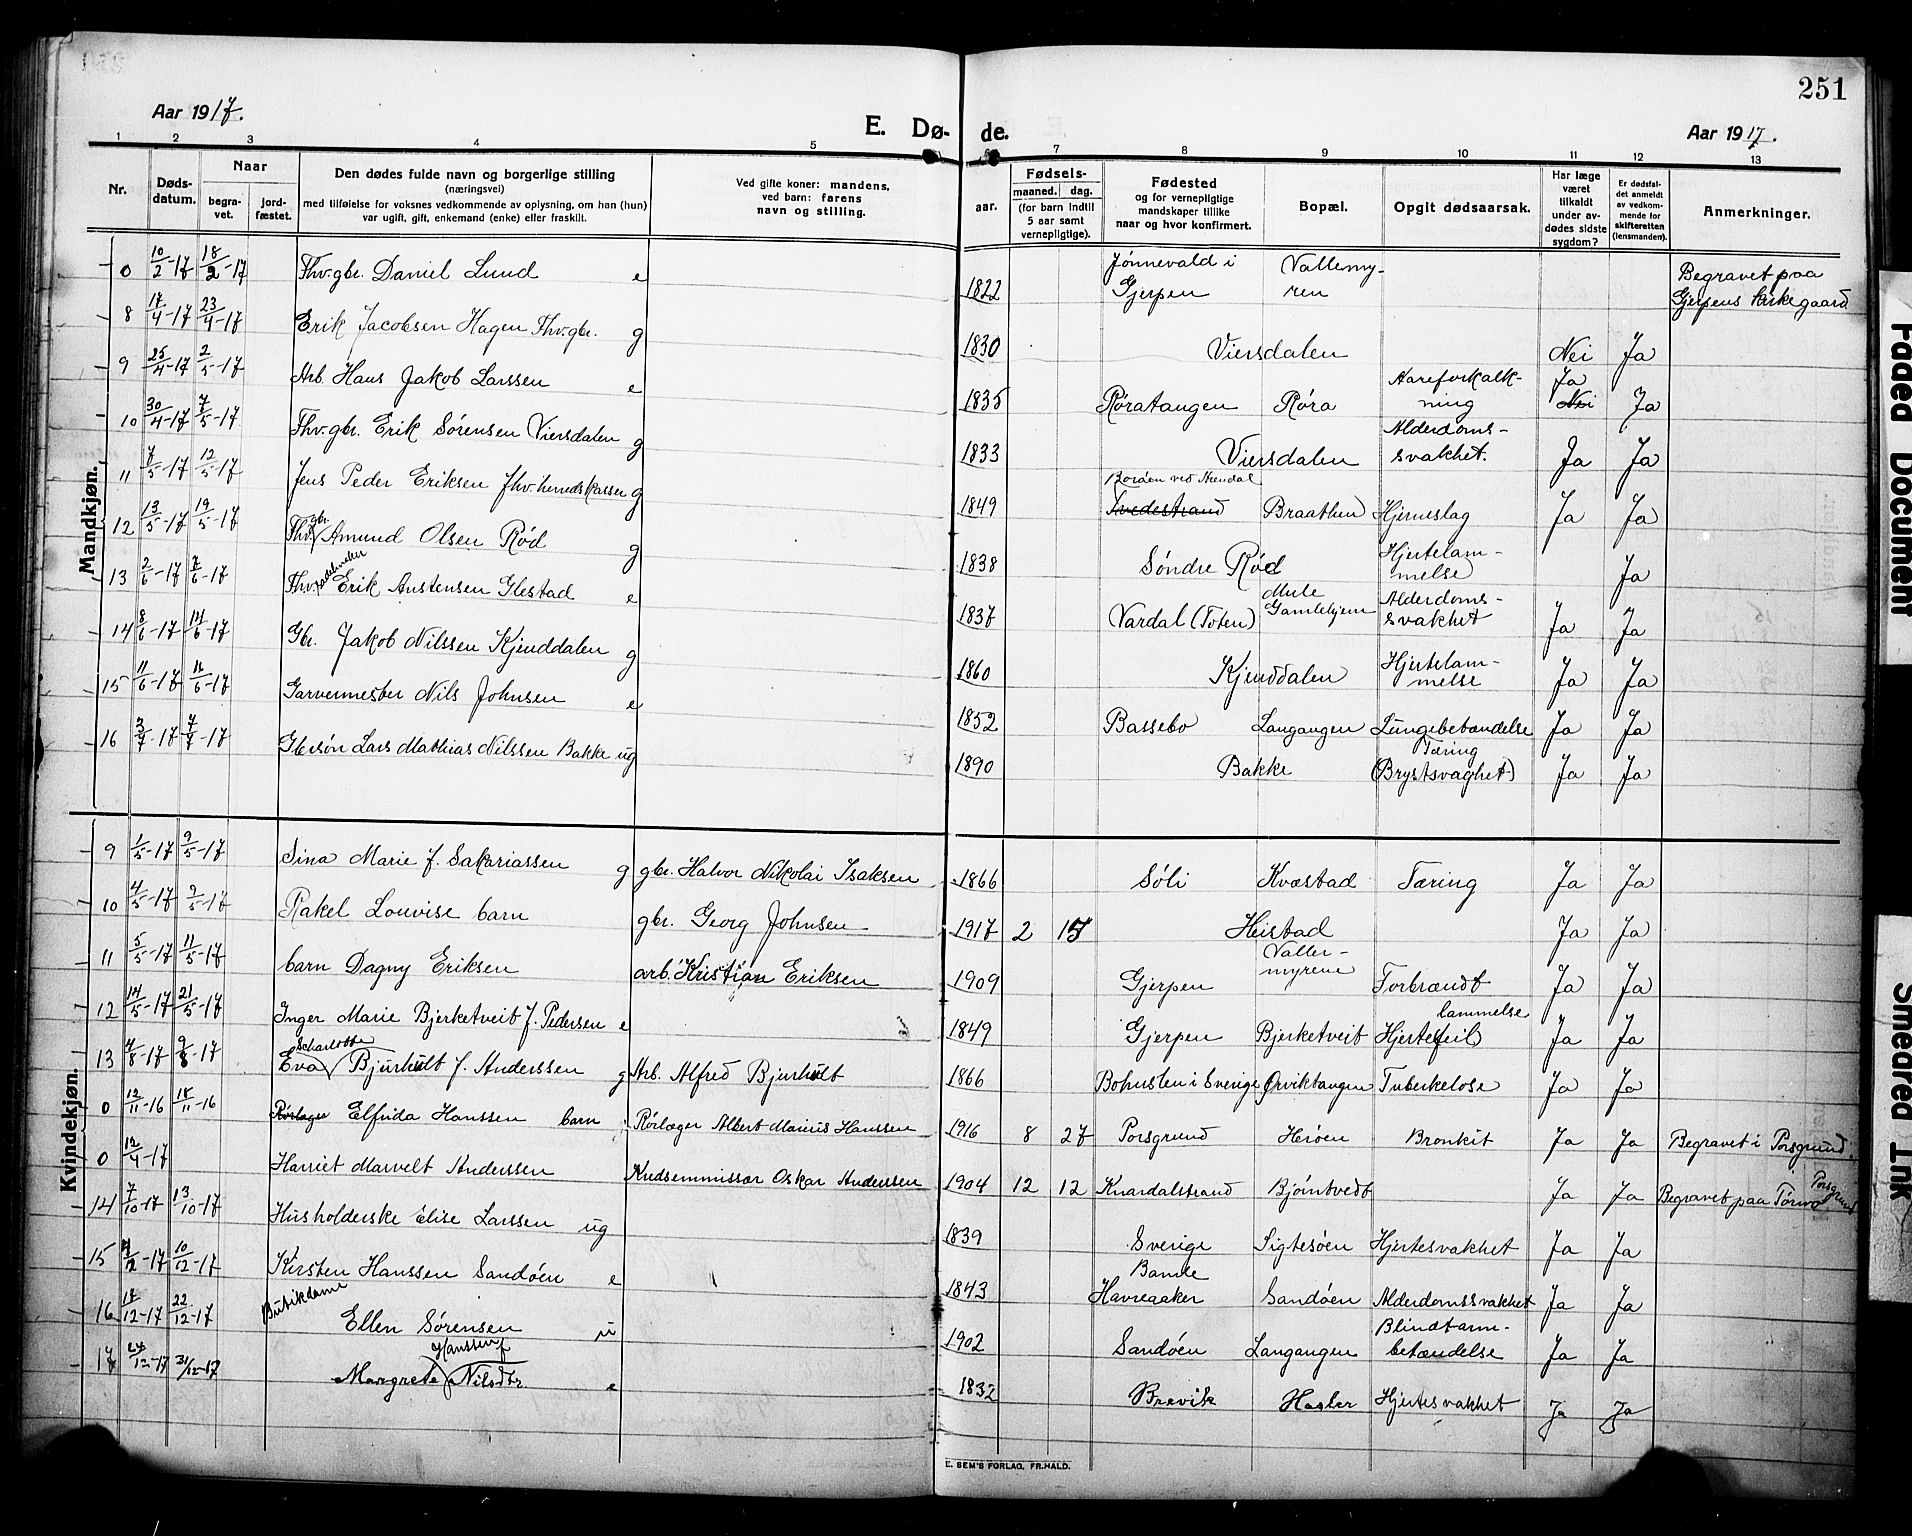 251
Aar 1917.
E. Dø-
de.
Aar 1917.
1 2 3 4 5 7 8 9 10 11 12 13
Nr.
Døds-
datum.
Naar
begra-
vet.
jord-
fæstet.
Den dødes fulde navn og borgerlige stilling
(næringsvei)
med tilføielse for voksnes vedkommende av oplysning, om han (hun)
var ugift, gift, enkemand (enke) eller fraskilt.
Ved gifte koner: mandens,
ved barn: farens
navn og stilling.
Fødsels-
aar.
maaned. dag.
(for barn indtil
5 aar samt
vernepligtige).
Fødested
og for vernepligtige
mandskaper tillike
naar og hvor konfirmert.
Bopæl.
Opgit dødsaarsak.
Har læge
været
tilkaldt
under av-
dødes sidste
sygdom?
Er dødsfal-
det anmeldt
av vedkom-
mende for
skifteretten
(lensmanden).
Anmerkninger.
Mandkjøn.
0 10/2-17 18/2-17 Fhv. gbr. Daniel Lund e 1822 Jønnevald i Gjerpen Vallemy-ren Begravet paa Gjerpens kirkegaard
8 17/4-17 23/4-17 Erik Jacobsen Hagen Fhv. gbr. g 1830 Viersdalen Nei Ja
9 25/4-17 2/5-17 Arb. Hans Jakob Larssen e 1835 Røratangen Røra Aareforkalk-ning Ja Nei Ja
10 30/4-17 7/5-17 Fhv. gbr. Erik Sørensen Viersdalen g 1833 Viersdalen Alderdoms-svakhet. Ja Ja
11 7/5-17 12/5-17 Jens Peder Eriksen fhv. herredskasser g 1849 Borøen ved Arendal Tvedestrand Braathen Hjerneslag Ja Ja
12 13/5-17 19/5-17 Fhv. gbr. Amund Olsen Rød g 1838 Søndre Rød Hjertelam-melse Ja
13 2/6-17 7/6-17 Fhv. Erik Anstensen Glestad e 1837 Vardal (Toten) Mule Gamlehjem Alderdoms-svakhet Ja Ja
14 8/6-17 14/6-17 Gbr. Jakob Nilssen Kjenddalen g 1860 Kjenddalen Hjertelam-melse Ja Ja
15 11/6-17 16/6-17 Garvermester Nils Johnsen e 1852 Bassebo Langangen Lungebetændelse Ja Ja
16 3/7-17 7/7-17 Gbrsøn Lars Mathias Nilssen Bakke ug 1890 Bakke Tæring (Brystsvaghet) Ja Ja
Kvindekjøn.
9 1/5-17 9/5-17 Sina Marie f. Sakariassen g gbr. Halvor Nikolai Isaksen 1866 Søli Kvæstad Tæring Ja Ja
10 4/5-17 9/5-17 Rakel Louvise barn gbr. Georg Johnsen 1917 2 15 Heistad Ja Ja
11 5/5-17 11/5-17 barn Dagny Eriksen arb. Kristian Eriksen 1909 Gjerpen Valler-myrene Forbrændt Ja Ja
12 14/5-17 21/5-17 Inger Marie Bjerketveit f. Pedersen e 1849 Gjerpen Bjerketveit Hjertefeil lammelse Ja Ja
13 4/8-17 9/8-17 Eva Scharlotte Bjurhult f. Anderssen g Arb. Alfred Bjurhult 1866 Bohuslen i Sverige Ørviktangen Tuberkelose Ja Ja
0 12/11-16 18/11-16 Rørlæger Elfrida Hanssen barn Rørlæger Albert Marius Hanssen 1916 8 27 Porsgrund Herøen Bronkit Ja Ja Begravet i Porsgrund.
0 12/4-17 Harriet Marvelt Anderssen Kredsemmissær Oskar Anderssen 1904 12 12 Knardalstrand Bjørntvedt Ja Ja Begravet paa Tørmo Porsgrund
14 7/10-17 13/10-17 Husholderske Elise Larssen ug 1839 Sverige Sigtesøen Hjertesvakhet Ja Ja
15 4/12-17 10/12-17 Kirsten Hanssen Sandøen e 1843 Havreaaker Bamle Sandøen Alderdomssvakhet Ja Ja
16 17/12-17 22/12-17 Butikdame Ellen Sørensen u 1902 Sandøen Langangen Blindtarm-betændelse Ja Ja
17 24/12-17 31/12-17 Margrete Hanssen f Nilsdtr. e 1832 Brevik Hasler Hjertesvakhet Ja Ja
E. SEM'S FORLAG, FR.HALD.
Faded Document
Smeared Ink